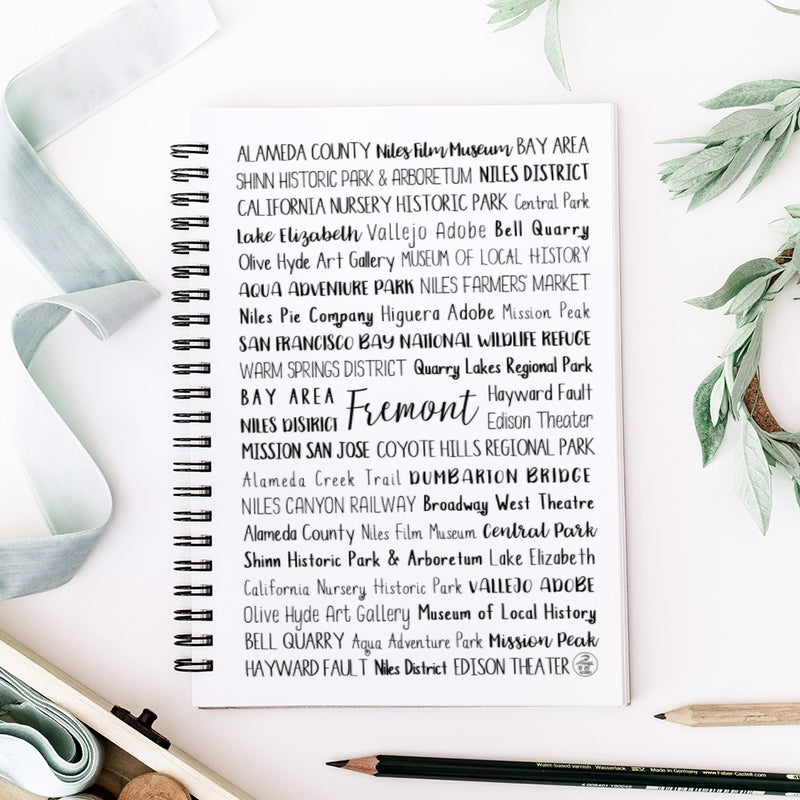 ALAMEDA COUNTY Niles Film Museum BAY AREA
SHINN HISTORIC PARK & ARBORETUM NILES DISTRICT
CALIFORNIA NURSERY HISTORIC PARK Central Park
Lake Elizabeth Vallejo Adobe Bell Quarry
Olive Hyde Art Gallery MUSEUM OF LOCAL HISTORY
AQUA ADVENTURE PARK NILES FARMERS' MARKET
Niles Pie Company Higuera Adobe Mission Peak
SAN FRANCISCO BAY NATIONAL WILDLIFE REFUGE
WARM SPRINGS DISTRICT Quarry Lakes Regional Park
BAY AREA Fremont Hayward Fault
NILES DISTRICT Edison Theater
MISSION SAN JOSE COYOTE HILLS REGIONAL PARK
Alameda Creek Trail DUMBARTON BRIDGE
NILES CANYON RAILWAY Broadway West Theatre
Alameda County Niles Film Museum Central Park
Shinn Historic Park & Arboretum Lake Elizabeth
California Nursery Historic Park VALLEJO ADOBE
Olive Hyde Art Gallery Museum of Local History
BELL QUARRY Aqua Adventure Park Mission Peak
HAYWARD FAULT Niles District EDISON THEATER
Water-based varnish Wasserlack Made in Germany www.Faber-Castell.com